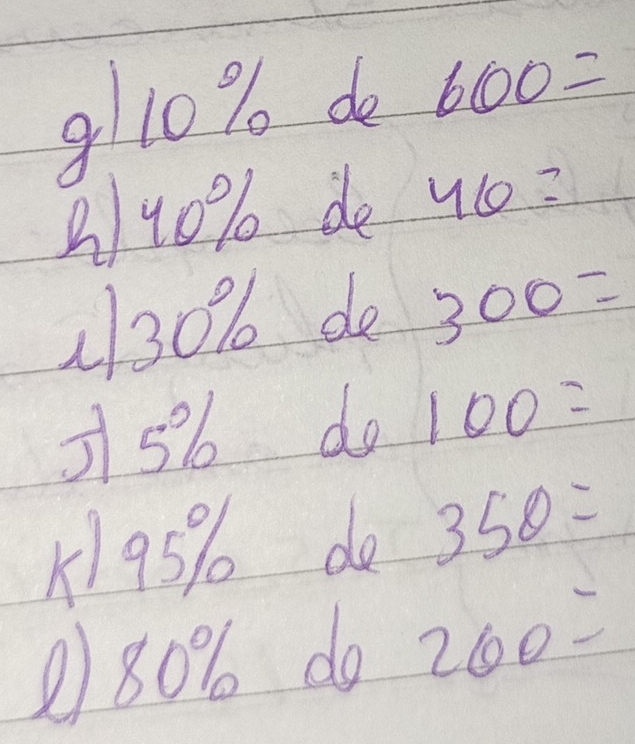 g) 10% de 600=
h) 40% de 40=
i) 30% de 300=
J) 5% de 100=
K) 95% de 350=
l) 80% de 200=